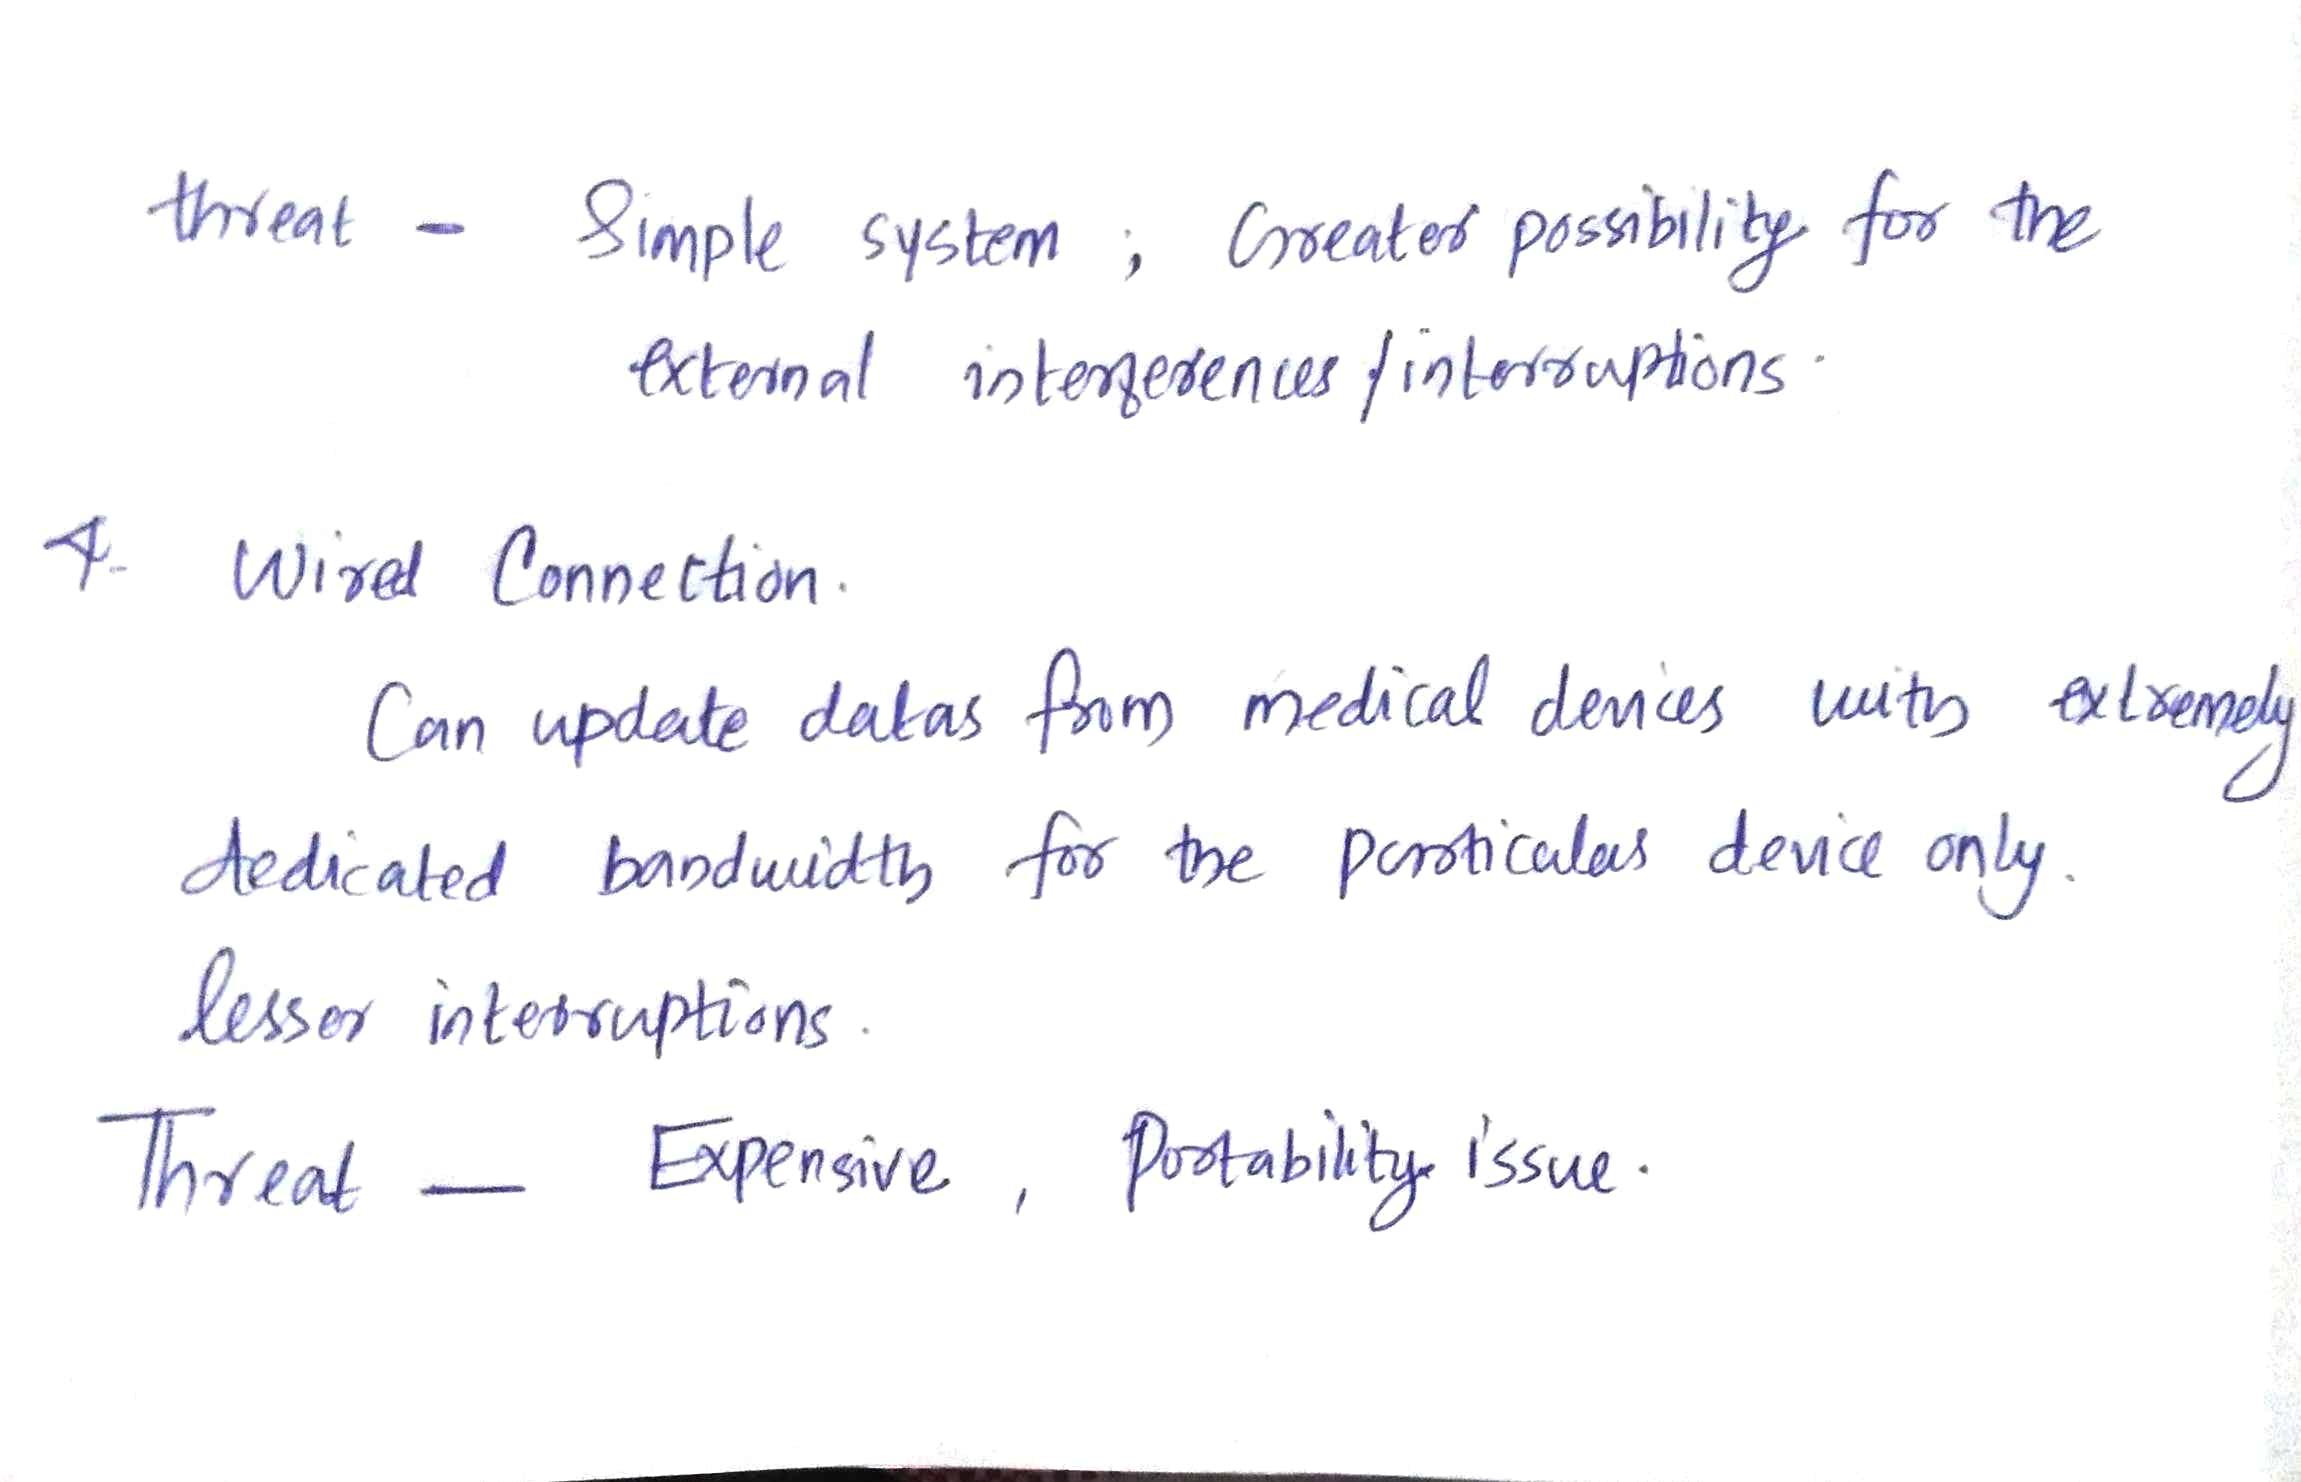 threat - Simple system ; Greater possibility for the
external interferences / interruptions.
4. Wired Connection.
Can update datas from medical devices with extremely
dedicated bandwidth for the particular device only.
lesser interruptions.
Threat — Expensive, Portability issue.